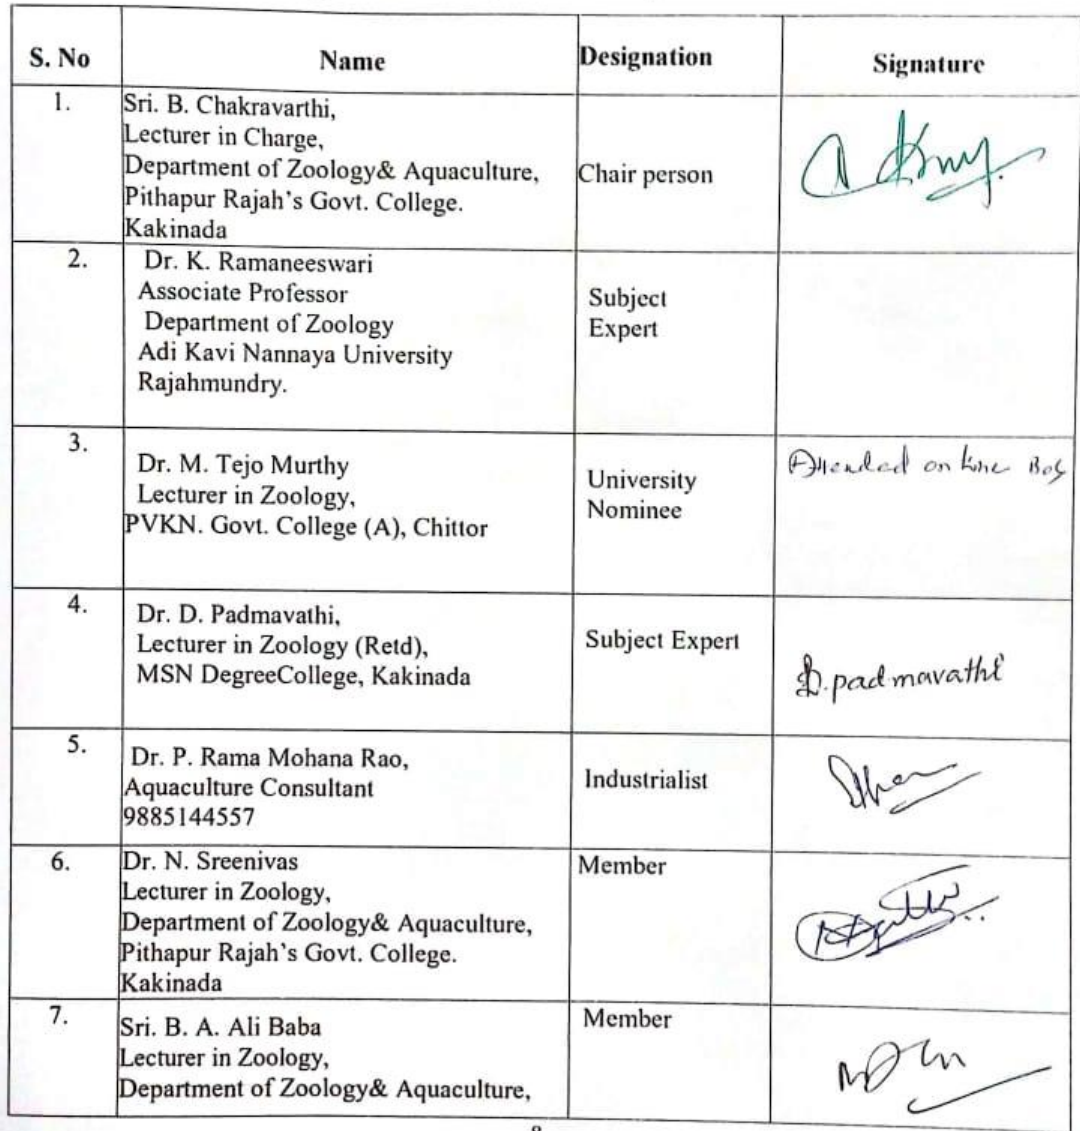 S. No Name Designation Signature
1. Sri. B. Chakravarthi,
Lecturer in Charge,
Department of Zoology& Aquaculture,
Pithapur Rajah's Govt. College.
Kakinada
Chair person
2. Dr. K. Ramaneeswari
Associate Professor
Department of Zoology
Adi Kavi Nannaya University
Rajahmundry.
Subject
Expert
3. Dr. M. Tejo Murthy
Lecturer in Zoology,
PVKN. Govt. College (A), Chittor
University
Nominee
Attended on line BoS
4. Dr. D. Padmavathi,
Lecturer in Zoology (Retd),
MSN DegreeCollege, Kakinada
Subject Expert
D. padmavathi
5. Dr. P. Rama Mohana Rao,
Aquaculture Consultant
9885144557
Industrialist
6. Dr. N. Sreenivas
Lecturer in Zoology,
Department of Zoology& Aquaculture,
Pithapur Rajah's Govt. College.
Kakinada
Member
7. Sri. B. A. Ali Baba
Lecturer in Zoology,
Department of Zoology& Aquaculture,
Member